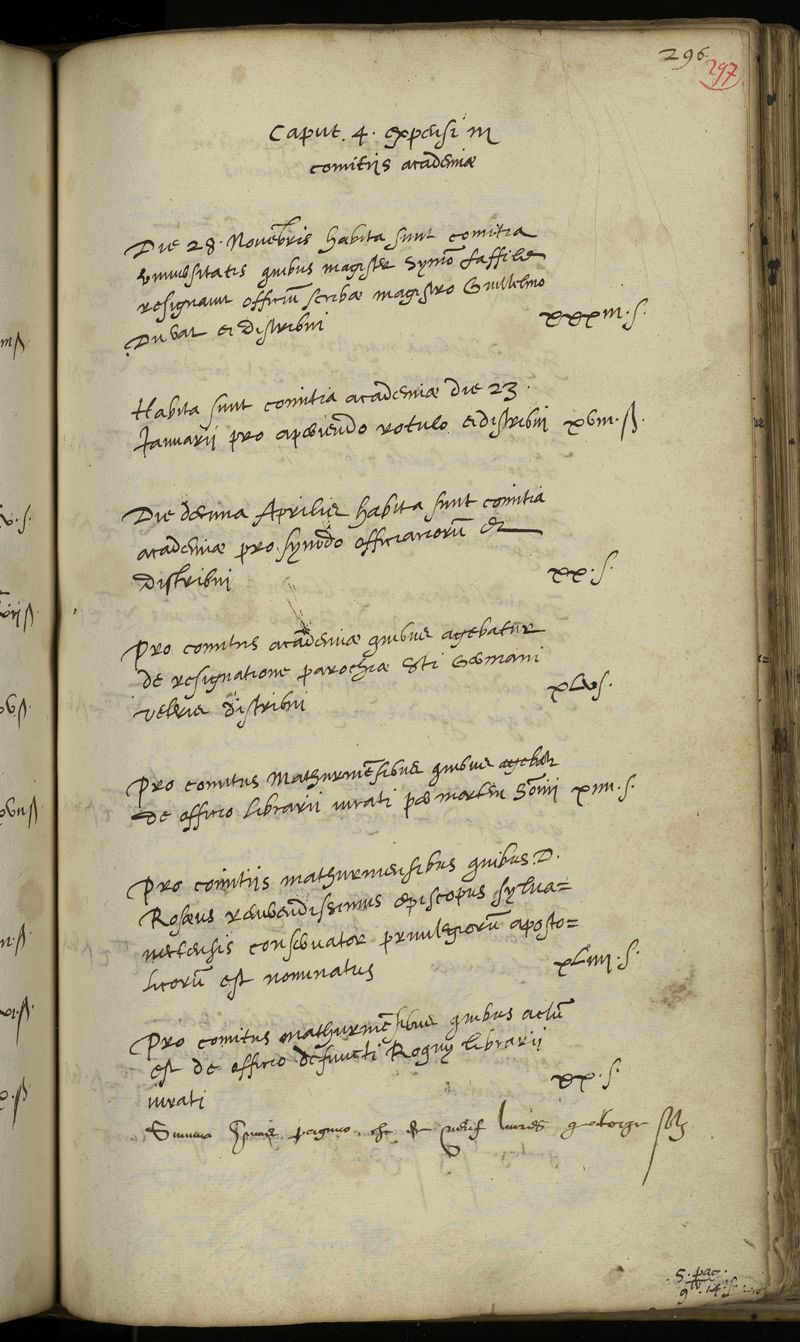 296.
297
Caput. 4. expensi in
comitiis academiæ
Die 28. Novēbris habita sunt comitia
universitatis quibus magister Symō
resignavit officiū scribæ magistro Guillelmo
Du Val ei distribui xxxiii. s.
Habita sunt comitia academiæ die 23.
Januarii pro aperiendo rotulo ei distribui xviii. ß.
Die decima Aprilis habita sunt comitia
academiæ pro synodo officiariorū et
distribui xx. s.
Pro comitiis academiæ quibus agebatur
de resignatione parochiæ Sti Germani
veteris distribui xLv s.
Pro comitiis Mathurinēsibus quibus agebat
de officio librarii iurati per mortem Somii xiiii. s.
Pro comitiis mathurinensibus quibus D.
Roseus reverendissimus episcopus sylva=
nectensis conservator privilegiorū aposto=
licorū est nominatus xLiiii. s.
Pro comitiis mathurinēsibus quibus actū
est de officio defuncti Roguy librarii
iurati xx. s.
Summa paginæ livres quatorze solz
5. pag.
9 14. s.